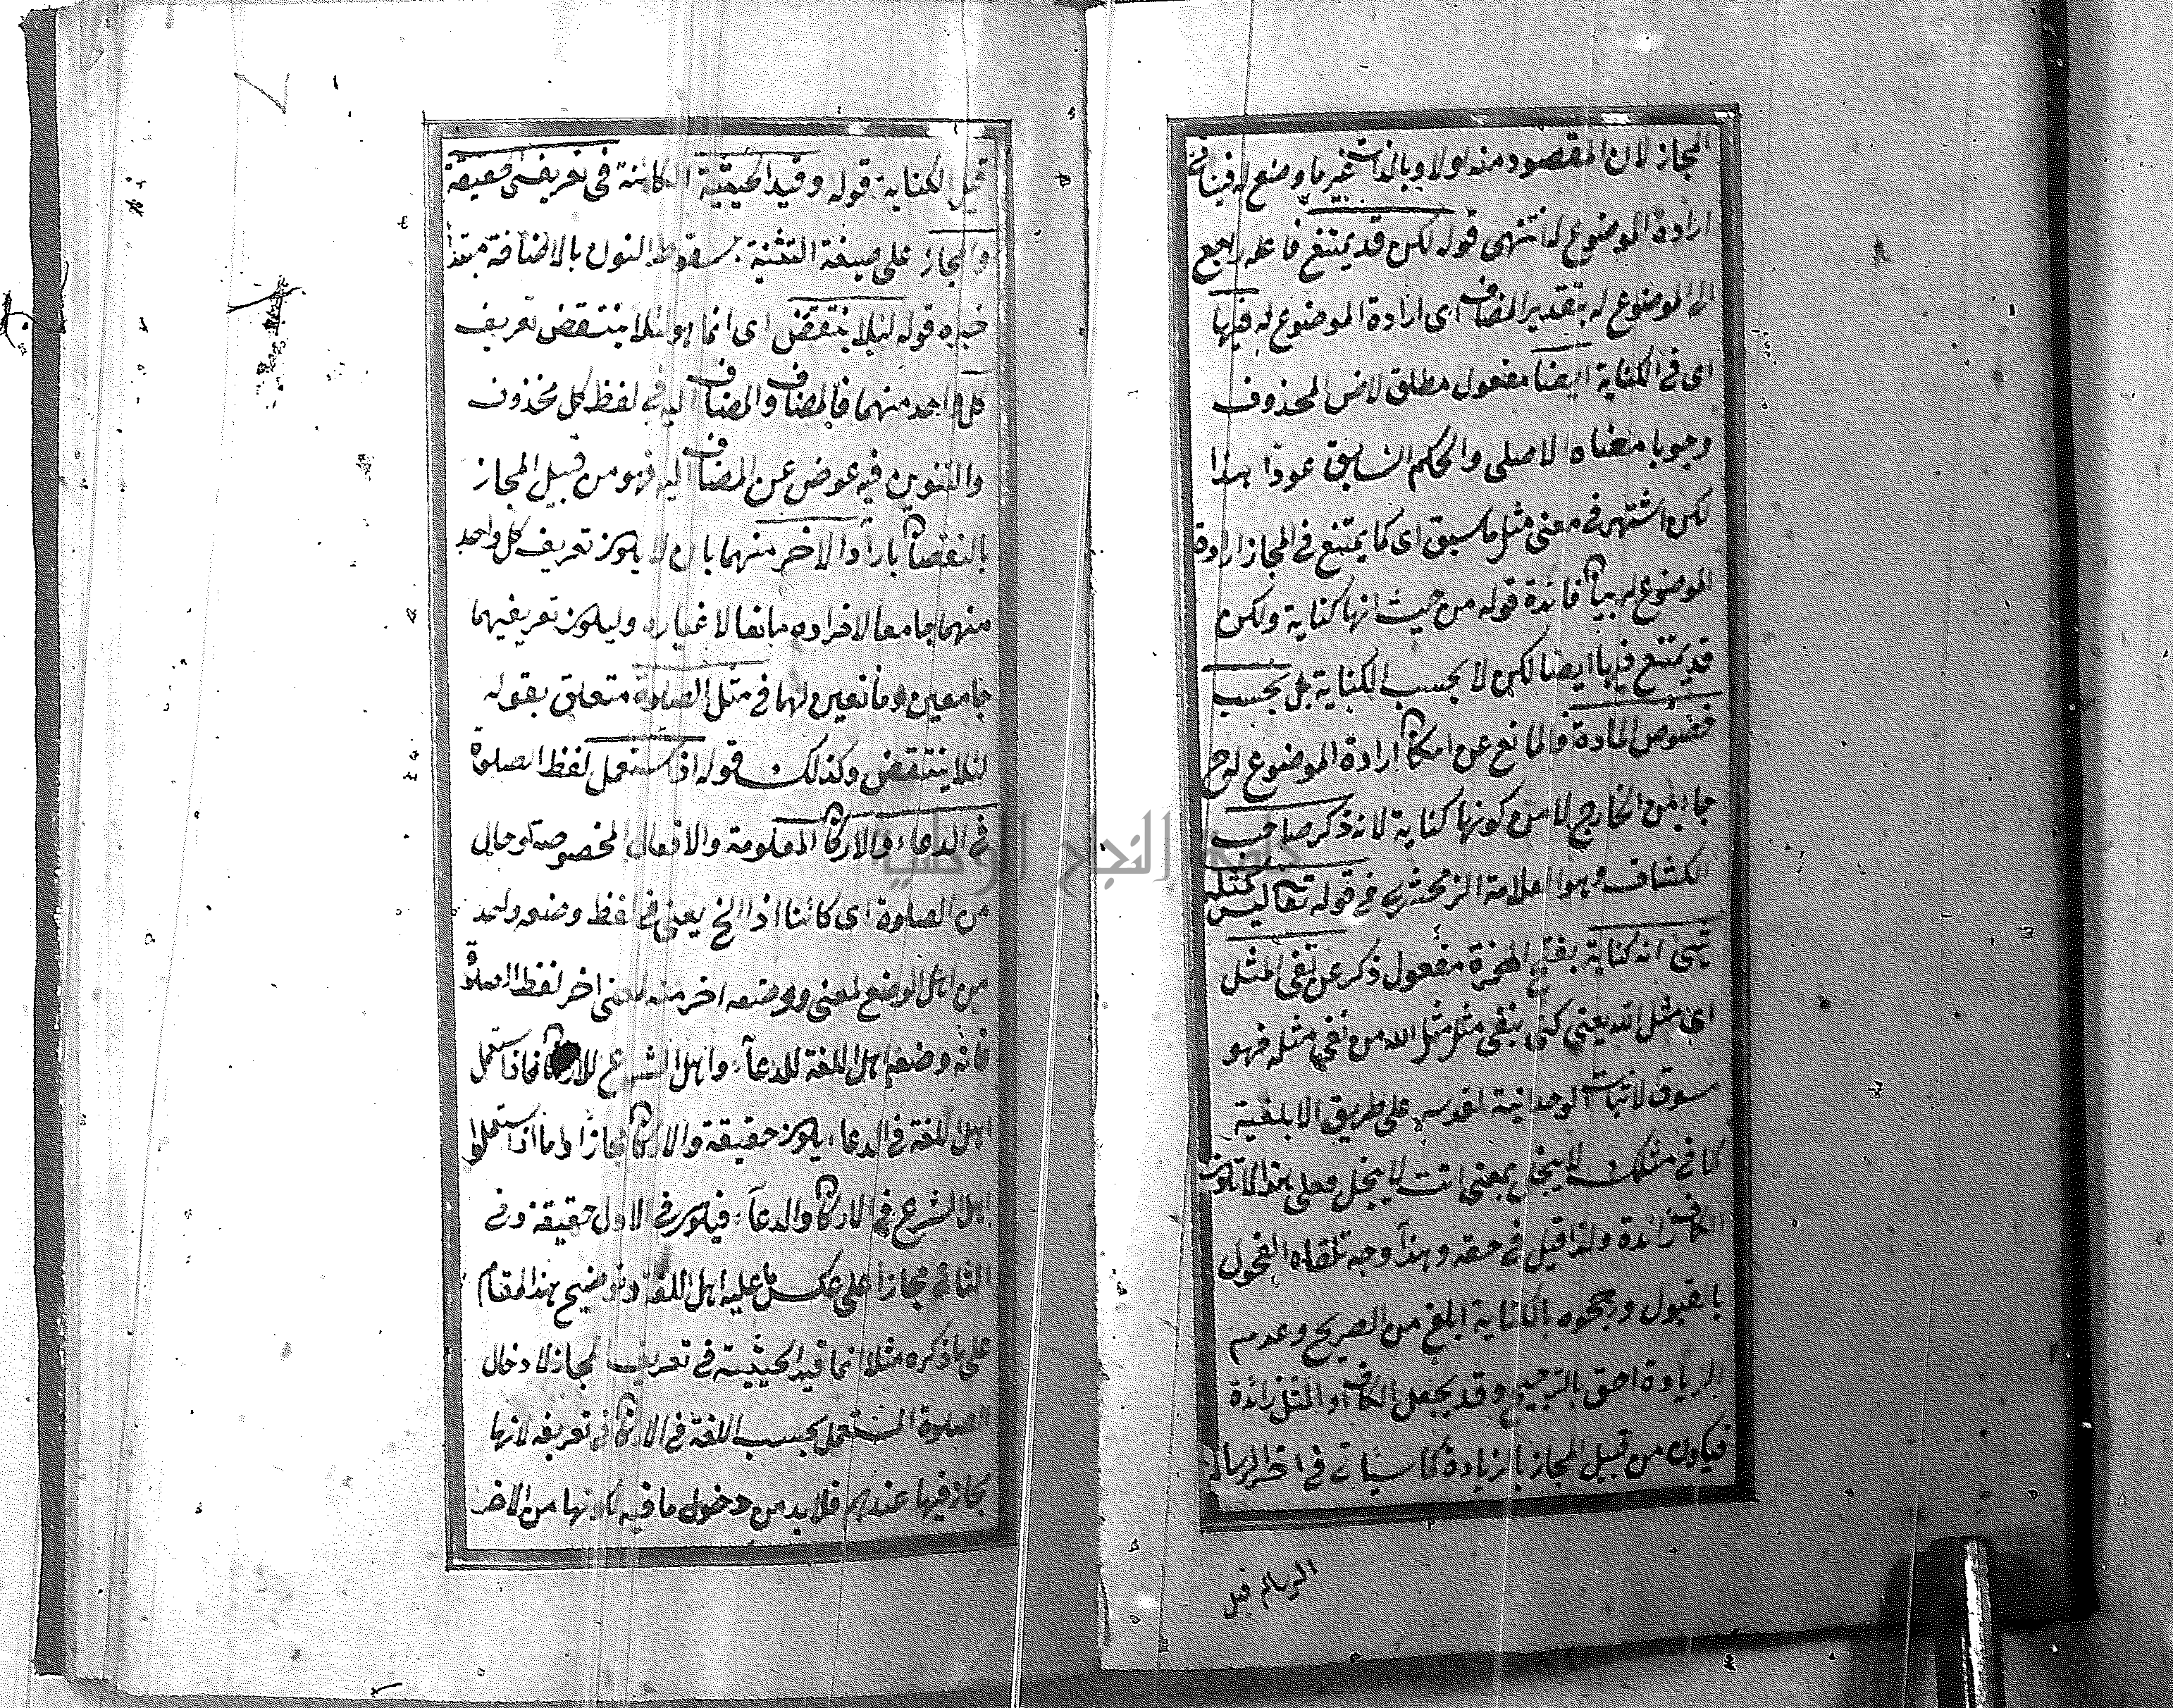 المجاز لان المقصود منه اولا وبالذات غير ما وضع له فينافى
ارادة الموضوع له انتهى قوله لكن قد يمتنع فاعله راجع
الى الموضوع له بتقدير المضاف اى ارادة الموضوع له فيها
اى فى الكناية ايضا مفعول مطلق لاض المحذوف
وجوبا معناه الاصلى والحكم السابق عوذا بهذا
لكن اشتهر فى معنى مثل ما سبق اى كما يمتنع فى المجاز ارادة
الموضوع له بيان فائدة قوله من حيث انها كناية ولكن
قد يمتنع فيها ايضا لكن لا بحسب الكناية بل بحسب
خصوص المادة والمانع عن امكان ارادة الموضوع له ح
جاء من الخارج لا من كونها كناية لانه ذكر صاحب
الكشاف وهو العلامة الزمحشرى فى قوله تعالى ليس كمثله
شيئ انه كناية بفتح الهمزة مفعول ذكر عن نفى المثل
اى مثل الله يعنى كنى بنفى مثل مثل الله من نفى مثله فهو
سوق لاثبات الوحدانية لقدسه على طريق الابلغية
كما فى مثلك لا يبخل بمعنى انت لا يبخل فعلى هذا لا تكون
الكاف زائدة ولذا قيل فى حقه وهذا وجه تلقاه الفحول
بالقبول ورجحوه بالكناية ابلغ من الصريح وعدم
الزيادة احق بالترجيح وقد يجعل الكاف او المثل زائدة
فيكون من قبيل المجاز بالزيادة كما سيأتى فى اخر الرسالة
الرسالم قيل
قيل الكناية قوله وقيد الحيثية الكائنة فى تعريفى الحقيقة
والمجاز على صيغة التثنية بسقوط النون بالاضافة مبتدأ
خبره قوله لئلا ينتقض اى انما هو لئلا ينتقض تعريف
كل واحد منهما فالمضاف والمضاف اليه فى لفظ كل محذوف
والتنوين فيه عوض عن المضاف اليه فهو من قبيل المجاز
بالنقصان بارادة الاخر منهما بان لا يكون تعريف كل واحد
منهما جامعا لافراده مانعا لاغياره وليكون تعريفيهما
جامعين ومانعين لهما فى مثل الصلوة متعلق بقوله
لئلا ينتقض وكذلك قوله اذا استعمل لفظ الصلوة
فى الدعاء والاركان المعلومة والافعال المخصوصة او حال
من الصلوة اى كائنا اذ الخ يعنى فى لفظ وضعه واحد
من اهل الوضع لمعنى ووضعه اخر منه لمعنى اخر لفظ الصلوة
فانه وضعه اهل اللغة للدعآء واهل الشرع للاركان فاذا استعمل
اهل اللغة فى الدعاء يكون حقيقة والاركان مجازا واما اذا استعملوا
اهل الشرع فى الاركان والدعآء فيكون فى الاول حقيقة وفى
الثانى مجازا على عكس ما عليه اهل اللغة وتوضيح هذا المقام
على ما ذكره مثلا انما قيد الحيثية فى تعريف المجاز لادخال
الصلوة المستعمل بحسب اللغة فى الاركان فى تعريفه لانها
مجاز فيها عندهم فلا بد من دخول ما فيه لكونها من الافراد